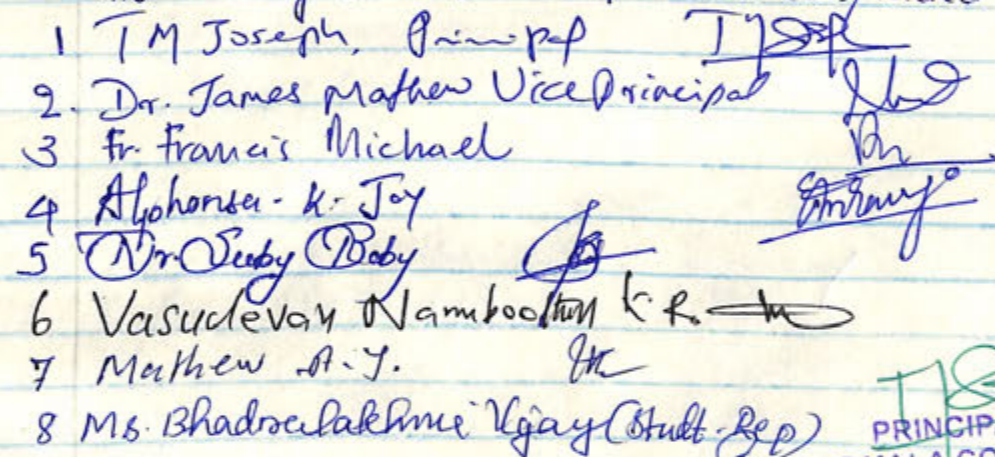 1 TM Joseph, Principal
2. Dr. James Mathew Vice Principal
3 Fr. Francis Michael
4 Alphonsa. K. Joy
5 Dr. Seeby Baby
6 Vasudevan Namboothiri K. R.
7 Mathew A. J.
8 Ms. Bhadralakhmi Vijay (Studt. Rep)
PRINCIP